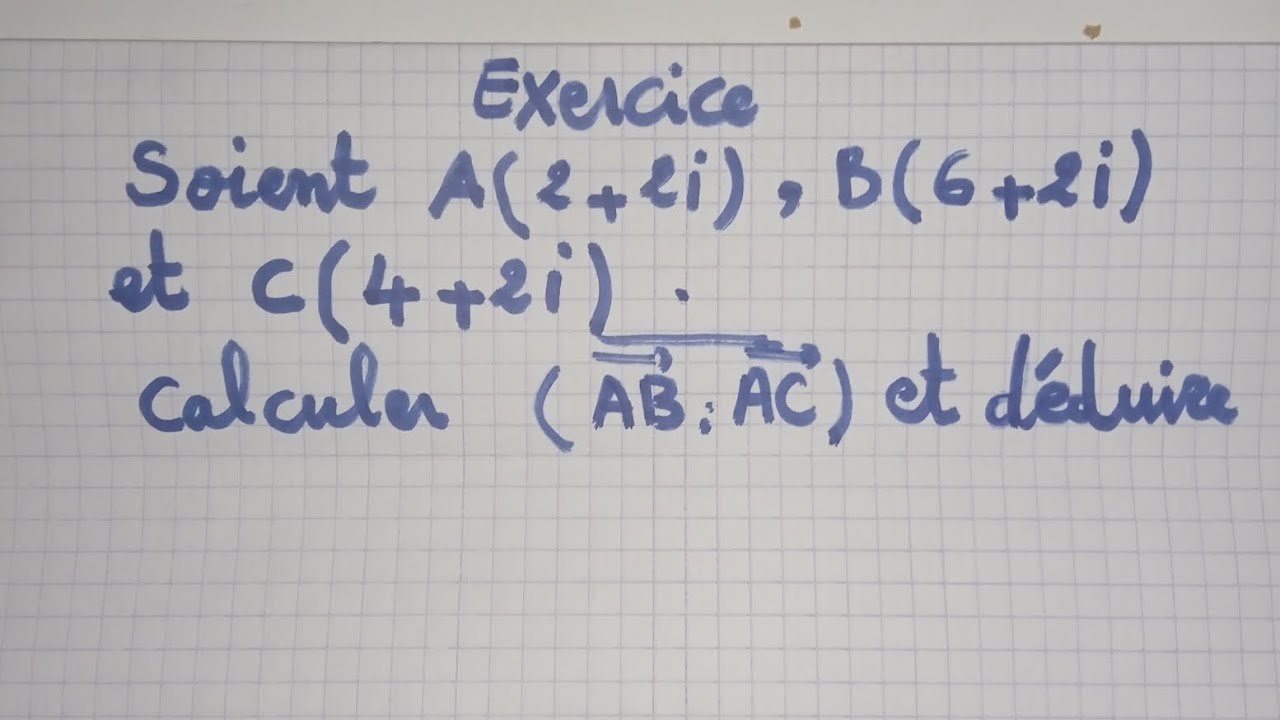 Exercice
Soient A(2+2i), B(6+2i)
et C(4+2i).
Calculer (AB; AC) et déduire